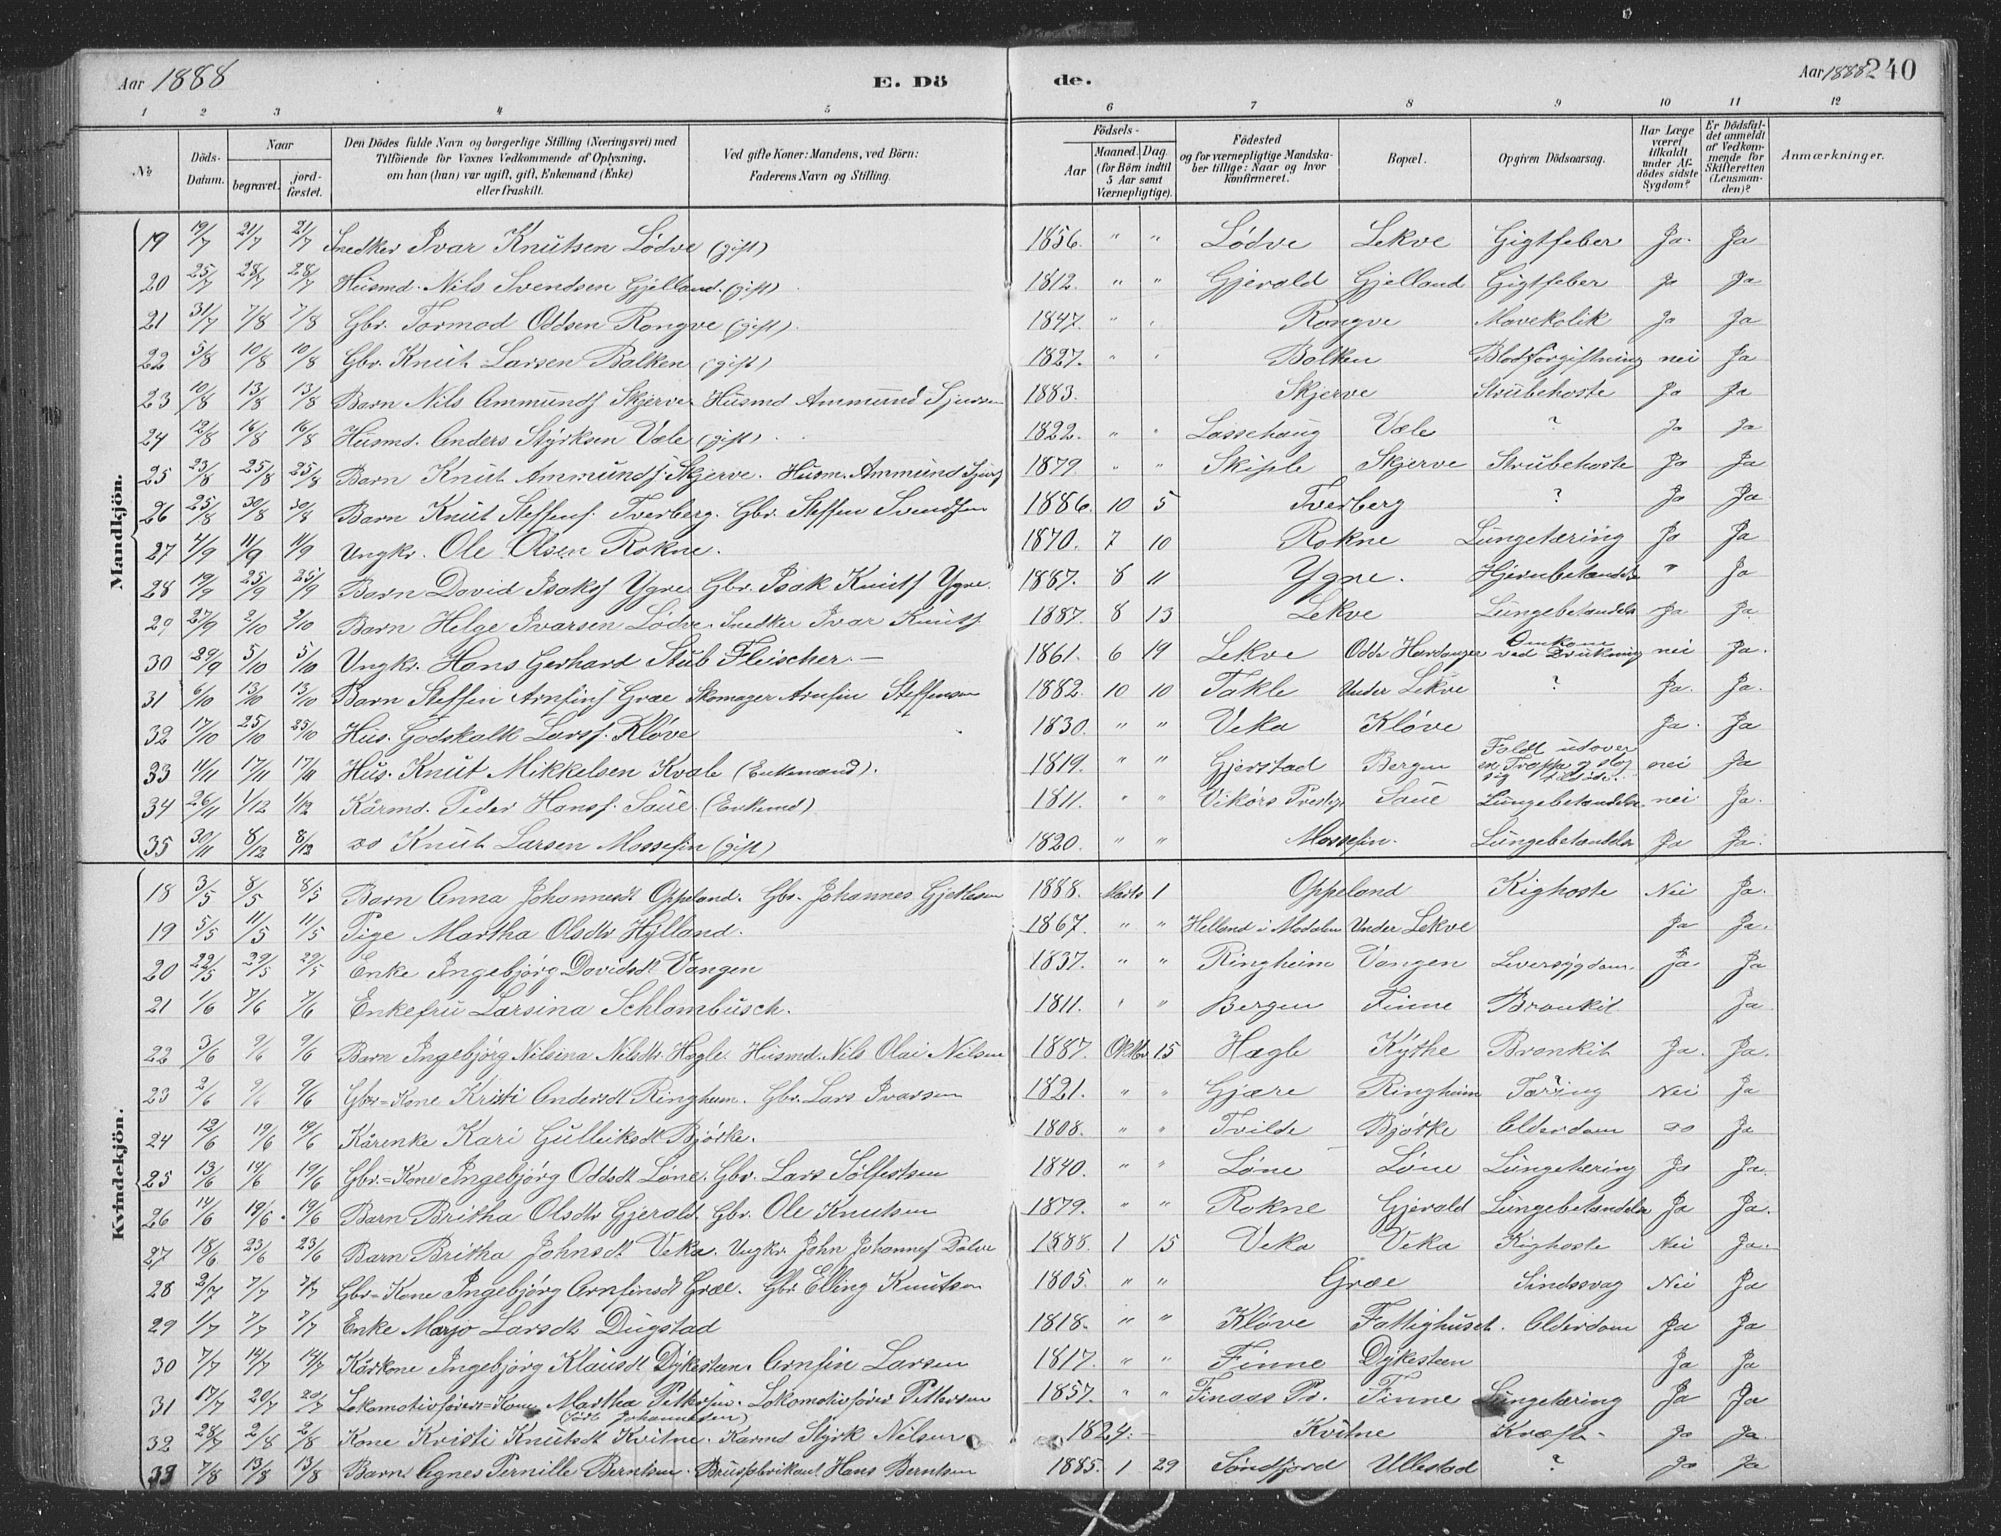 Aar 1888
E. Dö
de.
Aar 1888
240
1 2 3 4 5 6 7 8 9 10 11 12
No
Döds-Datum.
Naar
begravet.
jord-fæstet.
Den Dödes fulde Navn og borgerlige Stilling (Næringsvei) med
Tilföiende for Voxnes Vedkommende af Oplysning,
om han (hun) var ugift, gift, Enkemand (Enke)
eller fraskilt.
Ved gifte Koner: Mandens, ved Börn:
Faderens Navn og Stilling.
Födsels-
Aar
Maaned. Dag.
(for Börn indtil
5 Aar samt
Værnepligtige).
Födested
og for værnepligtige Mandska-
ber tillige: Naar og hvor
konfirmeret.
Bopæl.
Opgiven Dödsaarsag.
Har Læge
været
tilkaldt
under Af-
dödes sidste
Sygdom?
Er Dödsfal-
det anmeldt
af Vedkom-
mende for
Skifteretten
(Lensman-
den)?
Anmærkninger.
Mandkjön.
19 19/7 21/7 21/7 Snedker Ivar Knutsen Lödve (gift) 1856. " " Lödve Lekve Gigtfeber Ja. Ja
20 25/7 28/7 28/7 Husmd. Nils Svendsen Gjelland. (gift) 1812. " " Gjerald Gjelland Gigtfeber Ja Ja
21 31/7 7/8 7/8 Gbr. Tormod Oddsen Rongve (gift). 1847. " " Rongve Mavekolik Ja Ja
22 5/8 10/8 10/8 Gbr. Knut Larsen Balken (gift) 1827. " " Bolken Blodforgiftning nei Ja
23 10/8 13/8 13/8 Barn Nils Ammundf Skjerve. Husmd Ammund 1883. Skjerve Strubehoste Ja Ja
24 12/8 16/8 16/8 Husmd. Anders Styrksen Væle (gift). 1822. " " Lassehaug Væle ? Ja Ja
25 23/8 25/8 25/8 Barn Knut Ammundf. Skjerve. Husm. Ammund 1879. " " Skiple Skjerve Strubehoste Ja Ja
26 25/8 30/8 30/8 Barn Knut Steffenf. Tverberg. Gbr. Steffen Svendsen 1886. 10 5 Tverberg ? Ja Ja
27 4/9 11/9 11/9 Ungkr. Ole Olsen Rokne. 1870. 7 10 Rokne Lungetæring Ja Ja
28 19/9 25/9 25/9 Barn David Isaksf Ygre. Gbr. Isak Knutsf Ygre. 1887. 8 11 Ygre. Hjernbetændels " Ja
29 27/9 2/10 2/10 Barn Helge Ivarsen Lödve. Snedker Ivar Knutsf 1887. 8 13 Lekve Lungebetændelse Ja Ja
30 29/9 5/10 5/10 Ungkr. Hans Gerhard Stub Fleischer.— 1861. 6 19 Lekve Odde Hardanger Omkom ved Drukning nei Ja.
31 6/10 13/10 13/10 Barn Steffen Arnfinsf Græe Skomager Arnfin Steffensen 1882. 10 10 Takle Under Lekve ? Ja. Ja.
32 17/10 25/10 25/10 Hus. Godskalk Larsf. Kløve 1830. " " Veka Kløve Ja. Ja
33 11/11 17/11 17/11 Hus. Knut Mikkelsen Kvale (Enkemand). 1819. " " Gjerstad Bergen Faldt udover en Trappe og slog sig tildöde. nei Ja
34 26/11 1/12 1/12 Kårmd. Peder Hansf. Saue. (Enkemd) 1811. " " Vikørs Prestgj Saue Lungebetændelse. nei Ja.
35 30/11 8/12 8/12 do Knut Larsen Mossefin (gift) 1820. " " Mossefin. Lungebetændelse Ja Ja.
Kvindekjön.
18 3/5 8/5 8/5 Barn Anna Johannesdt Oppeland. Gbr. Johannes 1888. Marts 1 Oppeland Kighoste Nei Ja.
19 5/5 11/5 11/5 Pige Martha Olsdtr Hylland. 1867. " " Helland i Modalen Under Lekve Ja Ja.
20 22/5 29/5 29/5 Enke Ingebjörg Davidsdt Vangen 1837. " " Ringheim Vangen Leversygdom. Ja. Ja
21 1/6 7/6 7/6 Enkefru Larsina Schlambusch. 1811. " " Bergen Finne Bronkit Ja
22 3/6 9/6 9/6 Barn Ingebjörg Nilsina Nilsdtr. Hægle. Husmd. Nils Olai Nilsen 1887. Oktbr 15 Hægle Kythe Bronkit Ja. Ja.
23 2/6 9/6 9/6 Gbr=Kone Kristi Andersdt Ringheim. Gbr. Lars Ivarsen 1821. " " Gjære Ringheim Tæring ? Nei Ja
24 12/6 19/6 19/6 Kårenke Kari Gulleiksdt Bjørke. 1808. " " Tvilde Bjørke Alderdom do Ja
25 13/6 14/6 19/6 Gbr.=Kone Ingebjörg Oddsdt Løne. Gbr. Lars Sölfestsen 1840. " " Løne Løne Lungetæring Ja Ja.
26 14/6 19/6. 19/6 Barn Britha Olsdtr Gjerald. Gbr. Ole Knutsen 1879. " " Rokne Gjerald Lungebetændelse Ja Ja.
27 18/6 23/6 23/6 Barn Britha Johnsdt Veka. Ungkr. John Johannesf 1888. 1 15 Veka Veka Kighoste Nei Ja.
28 2/7 7/7 7/7 Gbr=Kone Ingebjörg Arnfinsdt Græe. Gbr. Elling Knutsen 1805. " " Græe Sindssvag Nei Ja
29 1/7 7/7 7/7 Enke Marjo Larsdt Dugstad 1818. " " Kløve Fattighuset. Alderdom Ja Ja
30 7/7 14/7 14/7 Kårkone Ingebjörg Klausdt Dykesteen. Arnfin Larsen 1817. " " Finne Dykesteen Ja Ja
31 17/7 20/7 20/7 Lokomotivförers=Kone Martha Pettersen. Lokomotivförer Pettersen 1857. " " Finaas Pr. Finne Lungetæring Ja Ja
(født Johannesen)
32 28/7 2/8 2/8 Kone Kristi Knutsdt Kvitne. Kårmd Styrk Nilsen 1824. — Kvitne Kræft. Ja Ja.
33 7/8 13/8 13/8 Barn Agnes Pernille Berntsen. Brusfabrikant Hans Berntsen 1885. 1 29 Søndfjord Ullestad ? Ja Ja